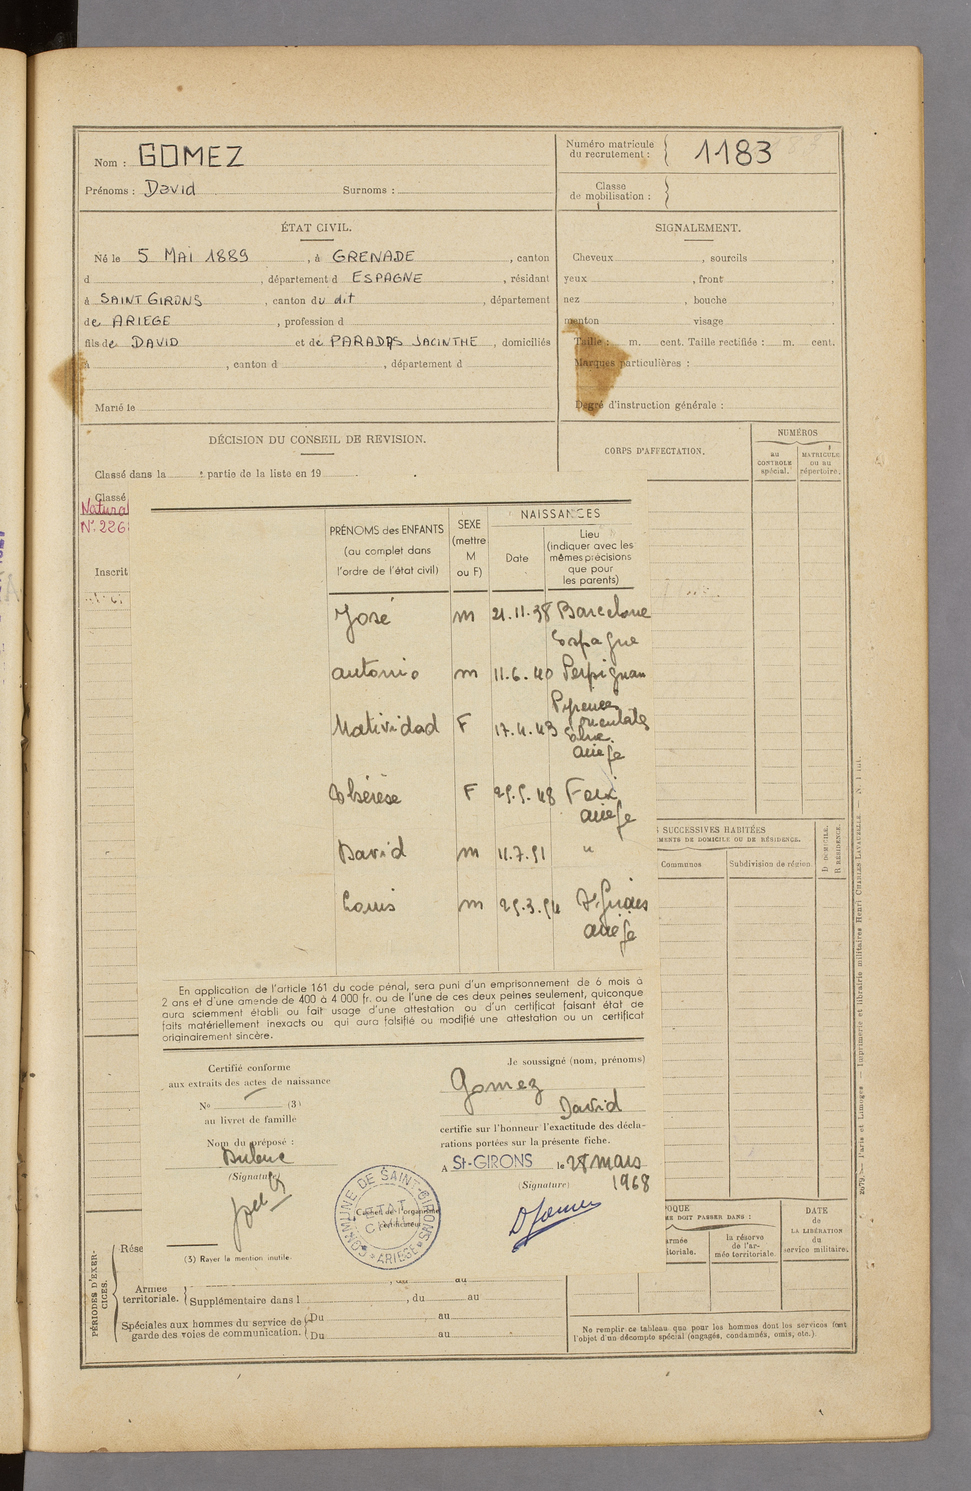 Nom : GOMEZ
Prénoms : David Surnoms :
Numéro matricule du recrutement : 1183
Classe de mobilisation :
ÉTAT CIVIL.
Né le 5 MAI 1889, à GRENADE, canton
d, département d ESPAGNE, résidant
à SAINT GIRONS, canton du dit, département
de ARIEGE, profession d
fils de DAVID et de JACINTHE, domiciliés
à, canton d, département d
Marié le
SIGNALEMENT.
Cheveux, sourcils,
yeux, front,
nez, bouche
menton visage
Taille : m. cent. Taille rectifiée : m. cent.
Marques particulières :
Degré d'instruction générale :
DÉCISION DU CONSEIL DE REVISION.
Classé dans la partie de la liste en 19
Classé
Natural
N° 226
Inscrit
CORPS D'AFFECTATION.
NUMÉROS
au CONTROLE spécial.
MATRICULE ou au répertoire.
PRÉNOMS des ENFANTS
(au complet dans
l'ordre de l'état civil)
SEXE
(mettre
M
ou F)
NAISSANCES
Date
Lieu
(indiquer avec les
mêmes précisions
que pour
les parents)
José m 21.11.38 Barcelone
Espagne
Antonio m 11.6.40 Perpignan
Pyrenees
orientales
Natividad F 17.4.43
ariege
Thérèse F 29.5.48 Foix
ariege
David m 11.7.51 "
Louis m 29.3.54 St Girons
ariege
En application de l'article 161 du code pénal, sera puni d'un emprisonnement de 6 mois à
2 ans et d'une amende de 400 à 4 000 fr. ou de l'une de ces deux peines seulement, quiconque
aura sciemment établi ou fait usage d'une attestation ou d'un certificat faisant état de
faits matériellement inexacts ou qui aura falsifié ou modifié une attestation ou un certificat
originairement sincère.
Certifié conforme
aux extraits des actes de naissance
N° (3)
au livret de famille
Nom du préposé :
(Signature)
(3) Rayer la mention inutile.
Je soussigné (nom, prénoms)
Gomez
David
certifie sur l'honneur l'exactitude des décla-
rations portées sur la présente fiche.
A St-GIRONS le 28 mars
1968
(Signature)
DGomez
COMMUNE DE SAINT-GIRONS
ETAT CIVIL
*ARIEGE*
Cachet de l'organisme certificateur
S SUCCESSIVES HABITÉES
EMENTS DE DOMICILE OU DE RÉSIDENCE.
Communes
Subdivision de région
D. DOMICILE.
R. RÉSIDENCE.
POQUE
ME DOIT PASSER DANS :
armée
itoriale.
la réserve
de l'ar-
mée territoriale.
DATE
de
LA LIBÉRATION
du
service militaire.
PÉRIODES D'EXER-
CICES.
Rése
Armée
territoriale.
, du au
Supplémentaire dans l, du au
Spéciales aux hommes du service de
garde des voies de communication.
Du, au
Du au
Ne remplir ce tableau que pour les hommes dont les services font
l'objet d'un décompte spécial (engagés, condamnés, omis, etc.).
Paris et Limoges. — Imprimerie et librairie militaires Henri CHARLES-LAVAUZELLE.